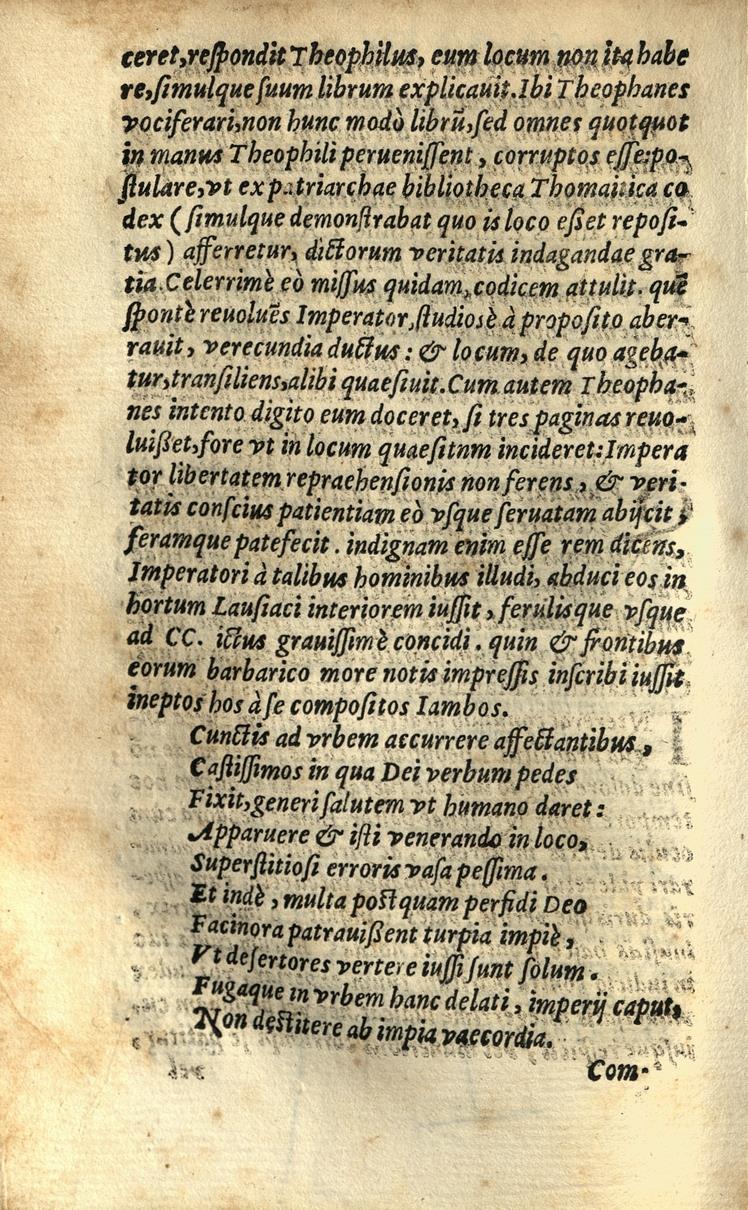 ceret, respondit Theophilus, eum locum non ita habe
re, simulque suum librum explicauit. Ibi Theophanes
vociferari, non hunc modò librũ, sed omnes quotquot
in manus Theophili peruenissent, corruptos esse: po-
stulare, vt ex patriarchae bibliotheca Thomaitica co
dex (simulque demonstrabat quo is loco eßet reposi-
tus) afferretur, dictorum veritatis indagandae gra-
tia. Celerrimè eò missus quidam, codicem attulit. quẽ
spontè reuoluẽs Imperator, studiosè à proposito aber-
rauit, verecundia ductus: & locum, de quo ageba-
tur, transiliens, alibi quaesiuit. Cum autem Theopha-
nes intento digito eum doceret, si tres paginas reuo-
luißet, fore vt in locum quaesitnm incideret: Impera
tor libertatem repraehensionis non ferens, & veri-
tatis conscius patientiam eò vsque seruatam abijcit,
feramque patefecit. indignam enim esse rem dicens,
Imperatori à talibus hominibus illudi, abduci eos in
hortum Lausiaci interiorem iussit, ferulisque vsque
ad CC. ictus grauissimè concidi. quin & frontibus
eorum barbarico more notis impressis inscribi iussit
ineptos hos à se compositos Iambos.
Cunctis ad vrbem accurrere affectantibus,
Castissimos in qua Dei verbum pedes
Fixit, generi salutem vt humano daret:
Apparuere & isti venerando in loco,
Superstitiosi erroris vasa pessima.
Et indè, multa post quam perfidi Deo
Facinora patrauißent turpia impiè,
Vt desertores vertere iussi sunt solum.
Fugaque in vrbem hanc delati, imperij caput,
Non destitere ab impia vaecordia.
Com-